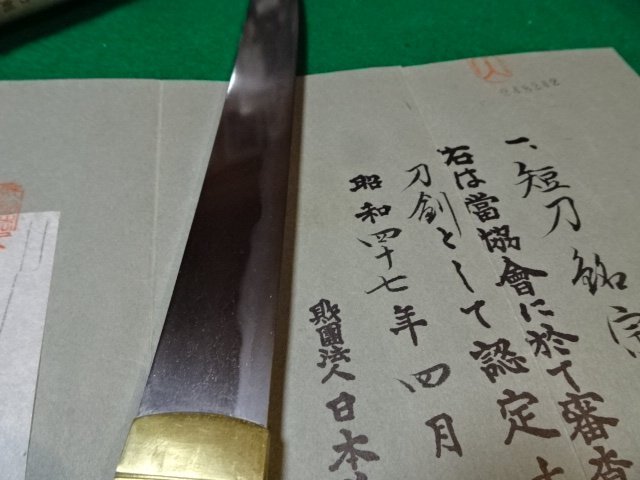 248212
一、短刀 銘
右は當協會に於て審査
刀劍として認定
昭和四十七年四月
財團法人日本